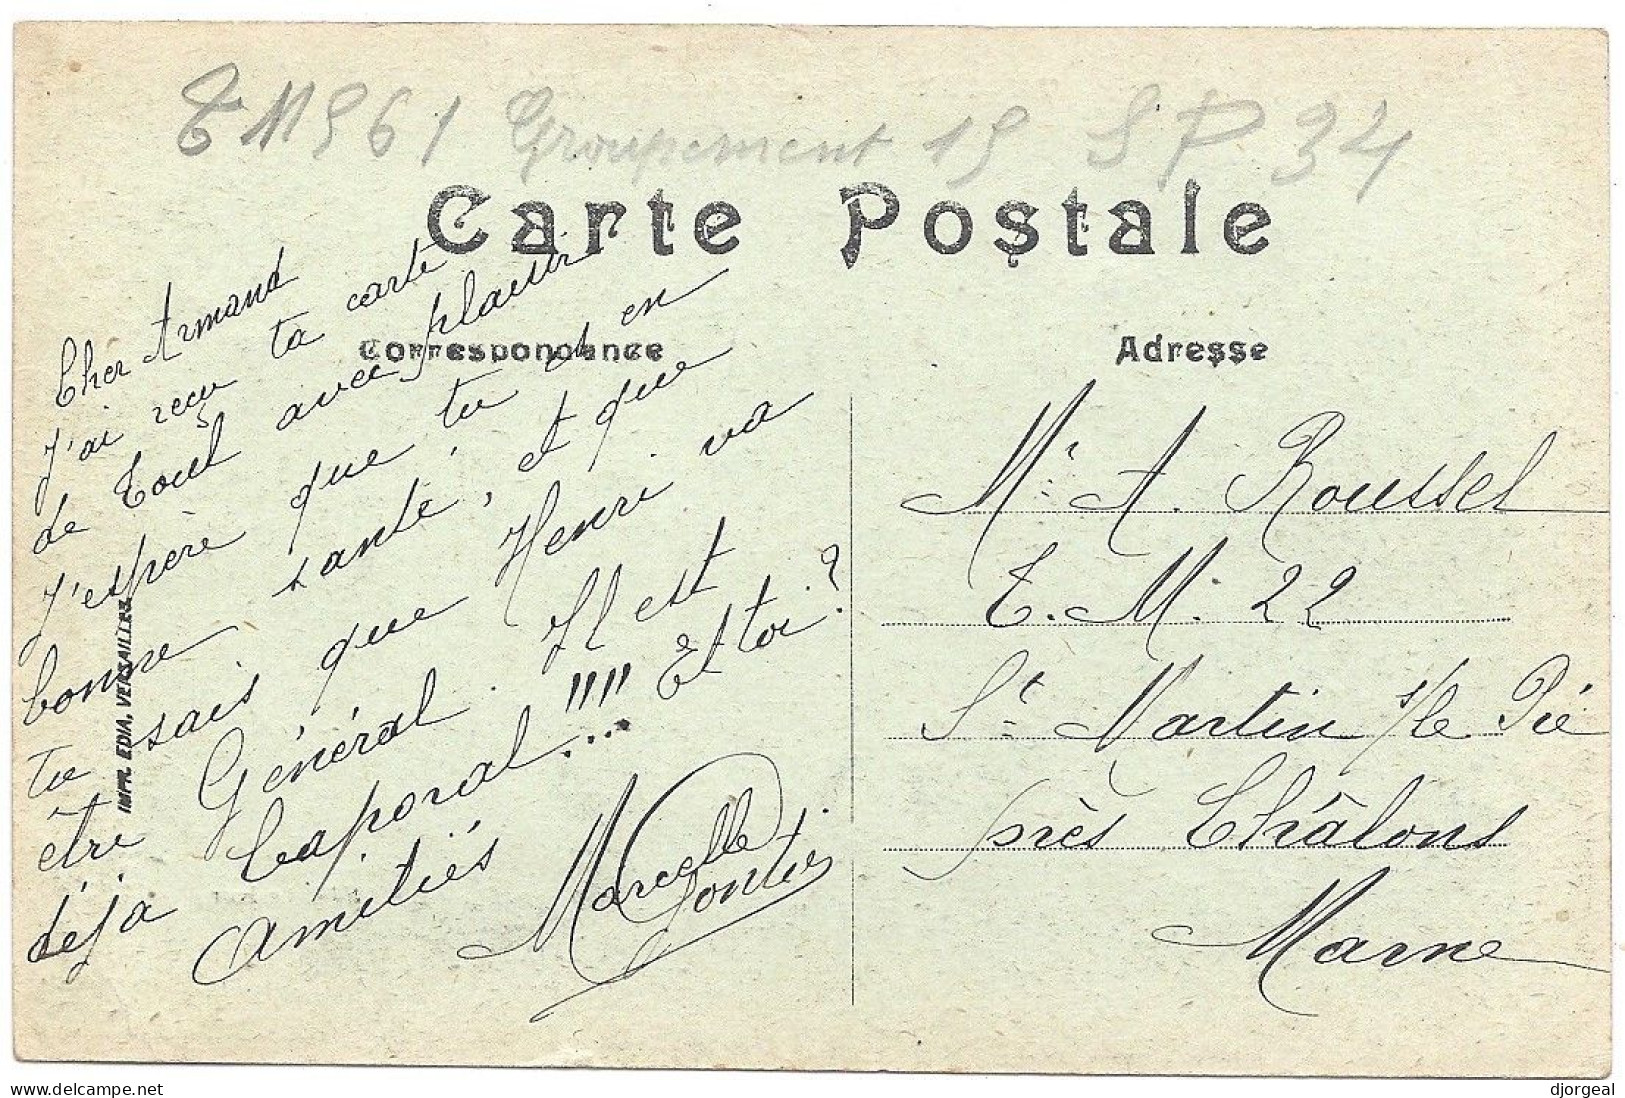 TM 561 Groupement 15 S P 34
Carte Postale
Correspondance
Cher Armand
J'ai reçu ta carte
de Toul avec plaisir
J'espère que tu es en
bonne santé, et que
tu sais que Henri va
être Général. Il est
déja Caporal!!!! Et toi?
Amitiés
Marcelle
IMPR. EDIA, VERSAILLES
Adresse
Mr A. Roussel
T. M. 22
St Martin s/le Pré
près Châlons
Marne
delcampe.net
djorgeal